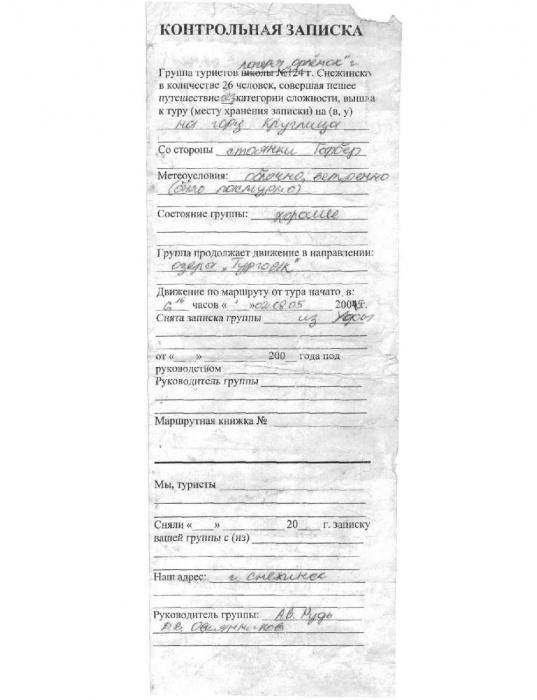 КОНТРОЛЬНАЯ ЗАПИСКА
лагеря „Орлёнок" г.
Группа туристов школы №124 г. Снежинска
в количестве 26 человек, совершая пешее
путешествие без категории сложности, вышла
к туру (месту хранения записки) на (в, у)
на гору Круглица
Со стороны стоянки Тафбер
Метеоусловия: облачно, ветренно
(было пасмурно)
Состояние группы: хорошее
Группа продолжает движение в направлении:
озера „Тургояк"
Движение по маршруту от тура начато в:
часов « » 02.08.05 200 г.
Снята записка группы из Уфы
от «___» 200 года под
руководством
Руководитель группы
Маршрутная книжка №
Мы, туристы
Сняли «___» 20___ г. записку
вашей группы с (из)
Наш адрес: г. Снежинск
Руководитель группы: А.В. Рудь